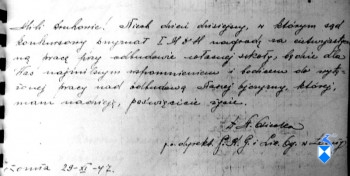 Mili Druhowie! Niech dzień dzisiejszy, w którym sąd
konkursowy przyznał I. M. D. H. nagrodę za
ną pracę przy odbudowie własnej szkoły, będzie dla
Was najmilszym wspomnieniem i bodźcem do wytę-
żonej pracy nad odbudową Naszej Ojczyzny, której,
mam nadzieję, poświęcicie życie.
p.o. dyrekt. P. K. G. i Lic.
Łomża 29-XI-47.